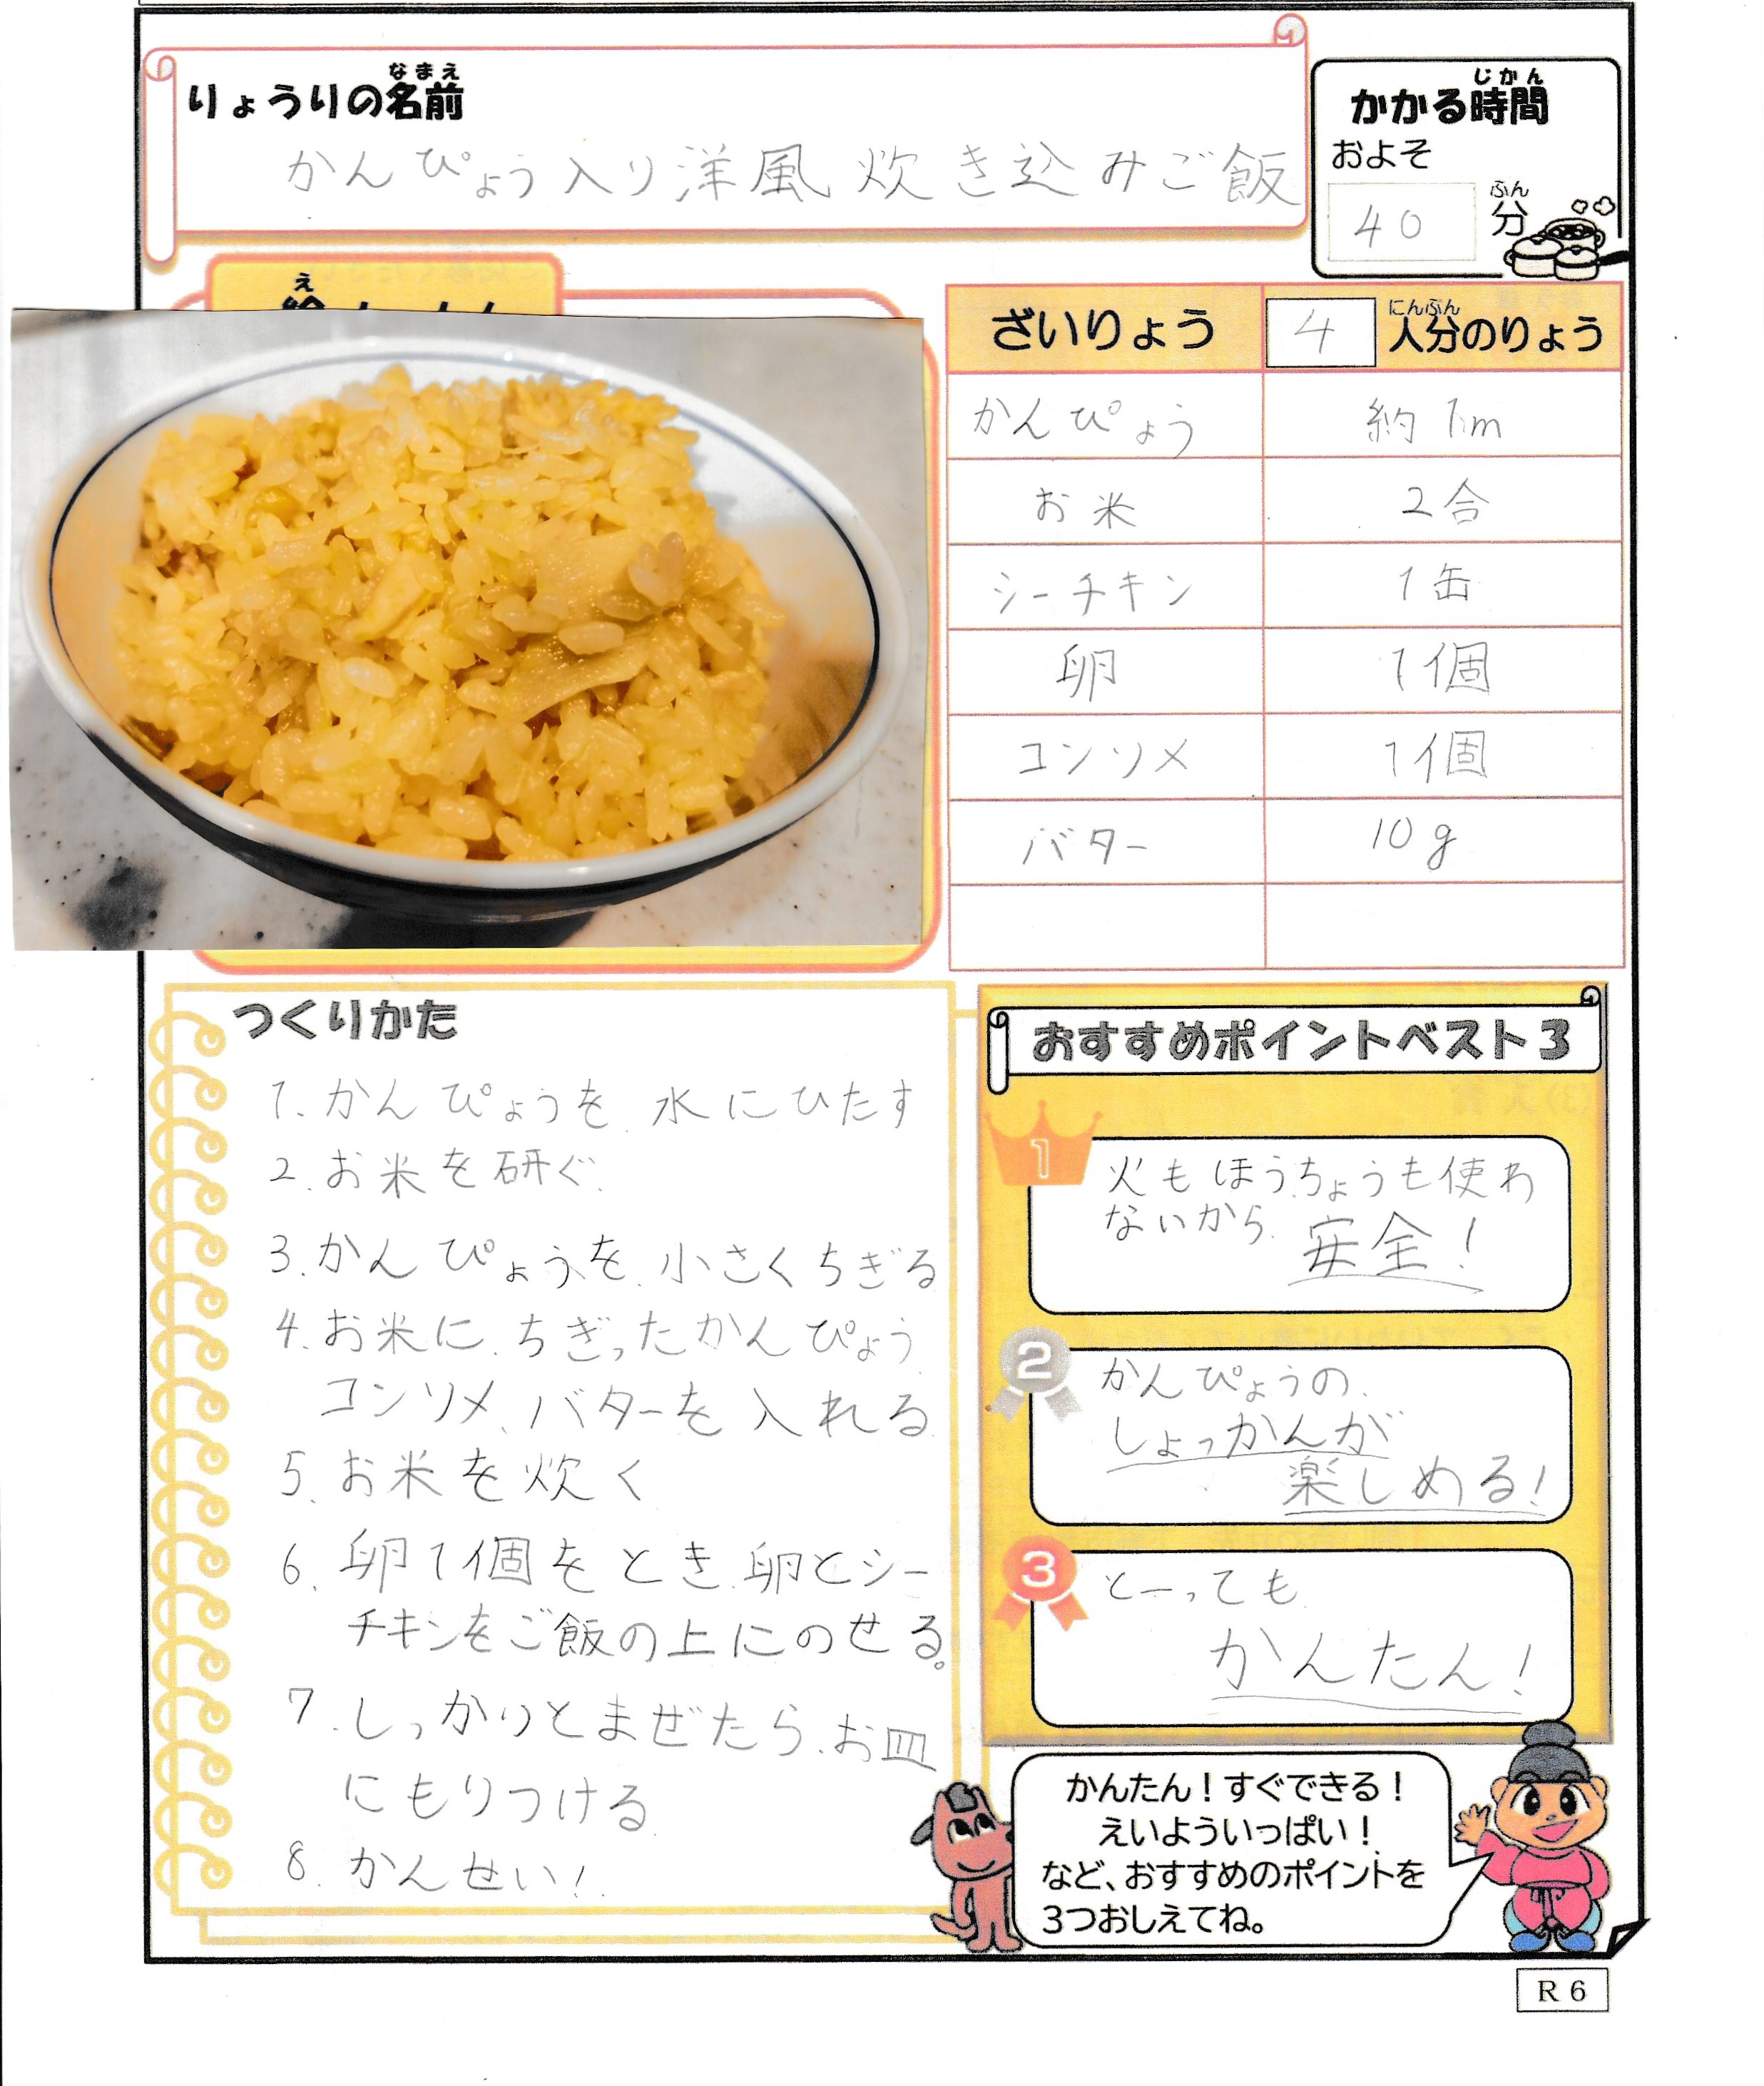 りょうりの名前
なまえ
かんぴょう入り洋風炊き込みご飯
かかる時間
じかん
およそ
40 分
ふん
え
ざいりょう 4 人分のりょう
にんぶん
かんぴょう 約1m
お米 2合
シーチキン 1缶
卵 1個
コンソメ 1個
バター 10g
つくりかた
1. かんぴょうを、水にひたす
2. お米を研ぐ
3. かんぴょうを、小さくちぎる
4. お米に、ちぎったかんぴょう、
コンソメ、バターを入れる
5. お米を炊く
6. 卵1個をとき、卵とシー
チキンをご飯の上にのせる。
7. しっかりとまぜたら、お皿
にもりつける
8. かんせい!
おすすめポイントベスト3
1
火もほうちょうも使わ
ないから、安全!
2
かんぴょうの、
しょっかんが
楽しめる!
3
とーっても
かんたん!
かんたん!すぐできる!
えいよういっぱい!
など、おすすめのポイントを
3つおしえてね。
R6